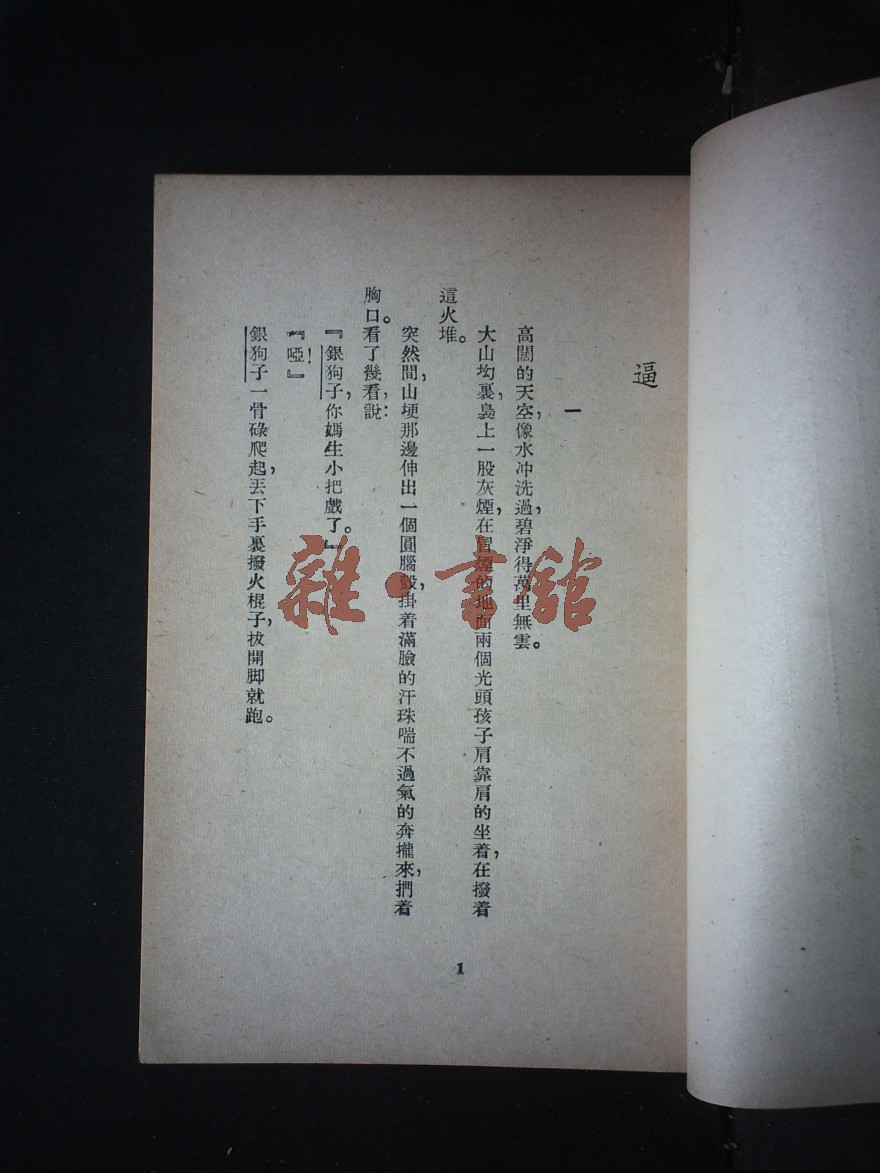 逼
一
高闊的天空，像水冲洗過，碧淨得萬里無雲。
大山坳裏，裊上一股灰煙，在冒煙的地面兩個光頭孩子肩靠肩的坐着，在撥着
這火堆。
突然間，山埂那邊伸出一個圓腦殼，掛着滿臉的汗珠喘不過氣的奔攏來，捫着
胸口。看了幾看，說：
『銀狗子，你媽生小把戲了。』
『啞！』
銀狗子一骨碌爬起，丟下手裏撥火棍子，拔開脚就跑。
1
雜·書館